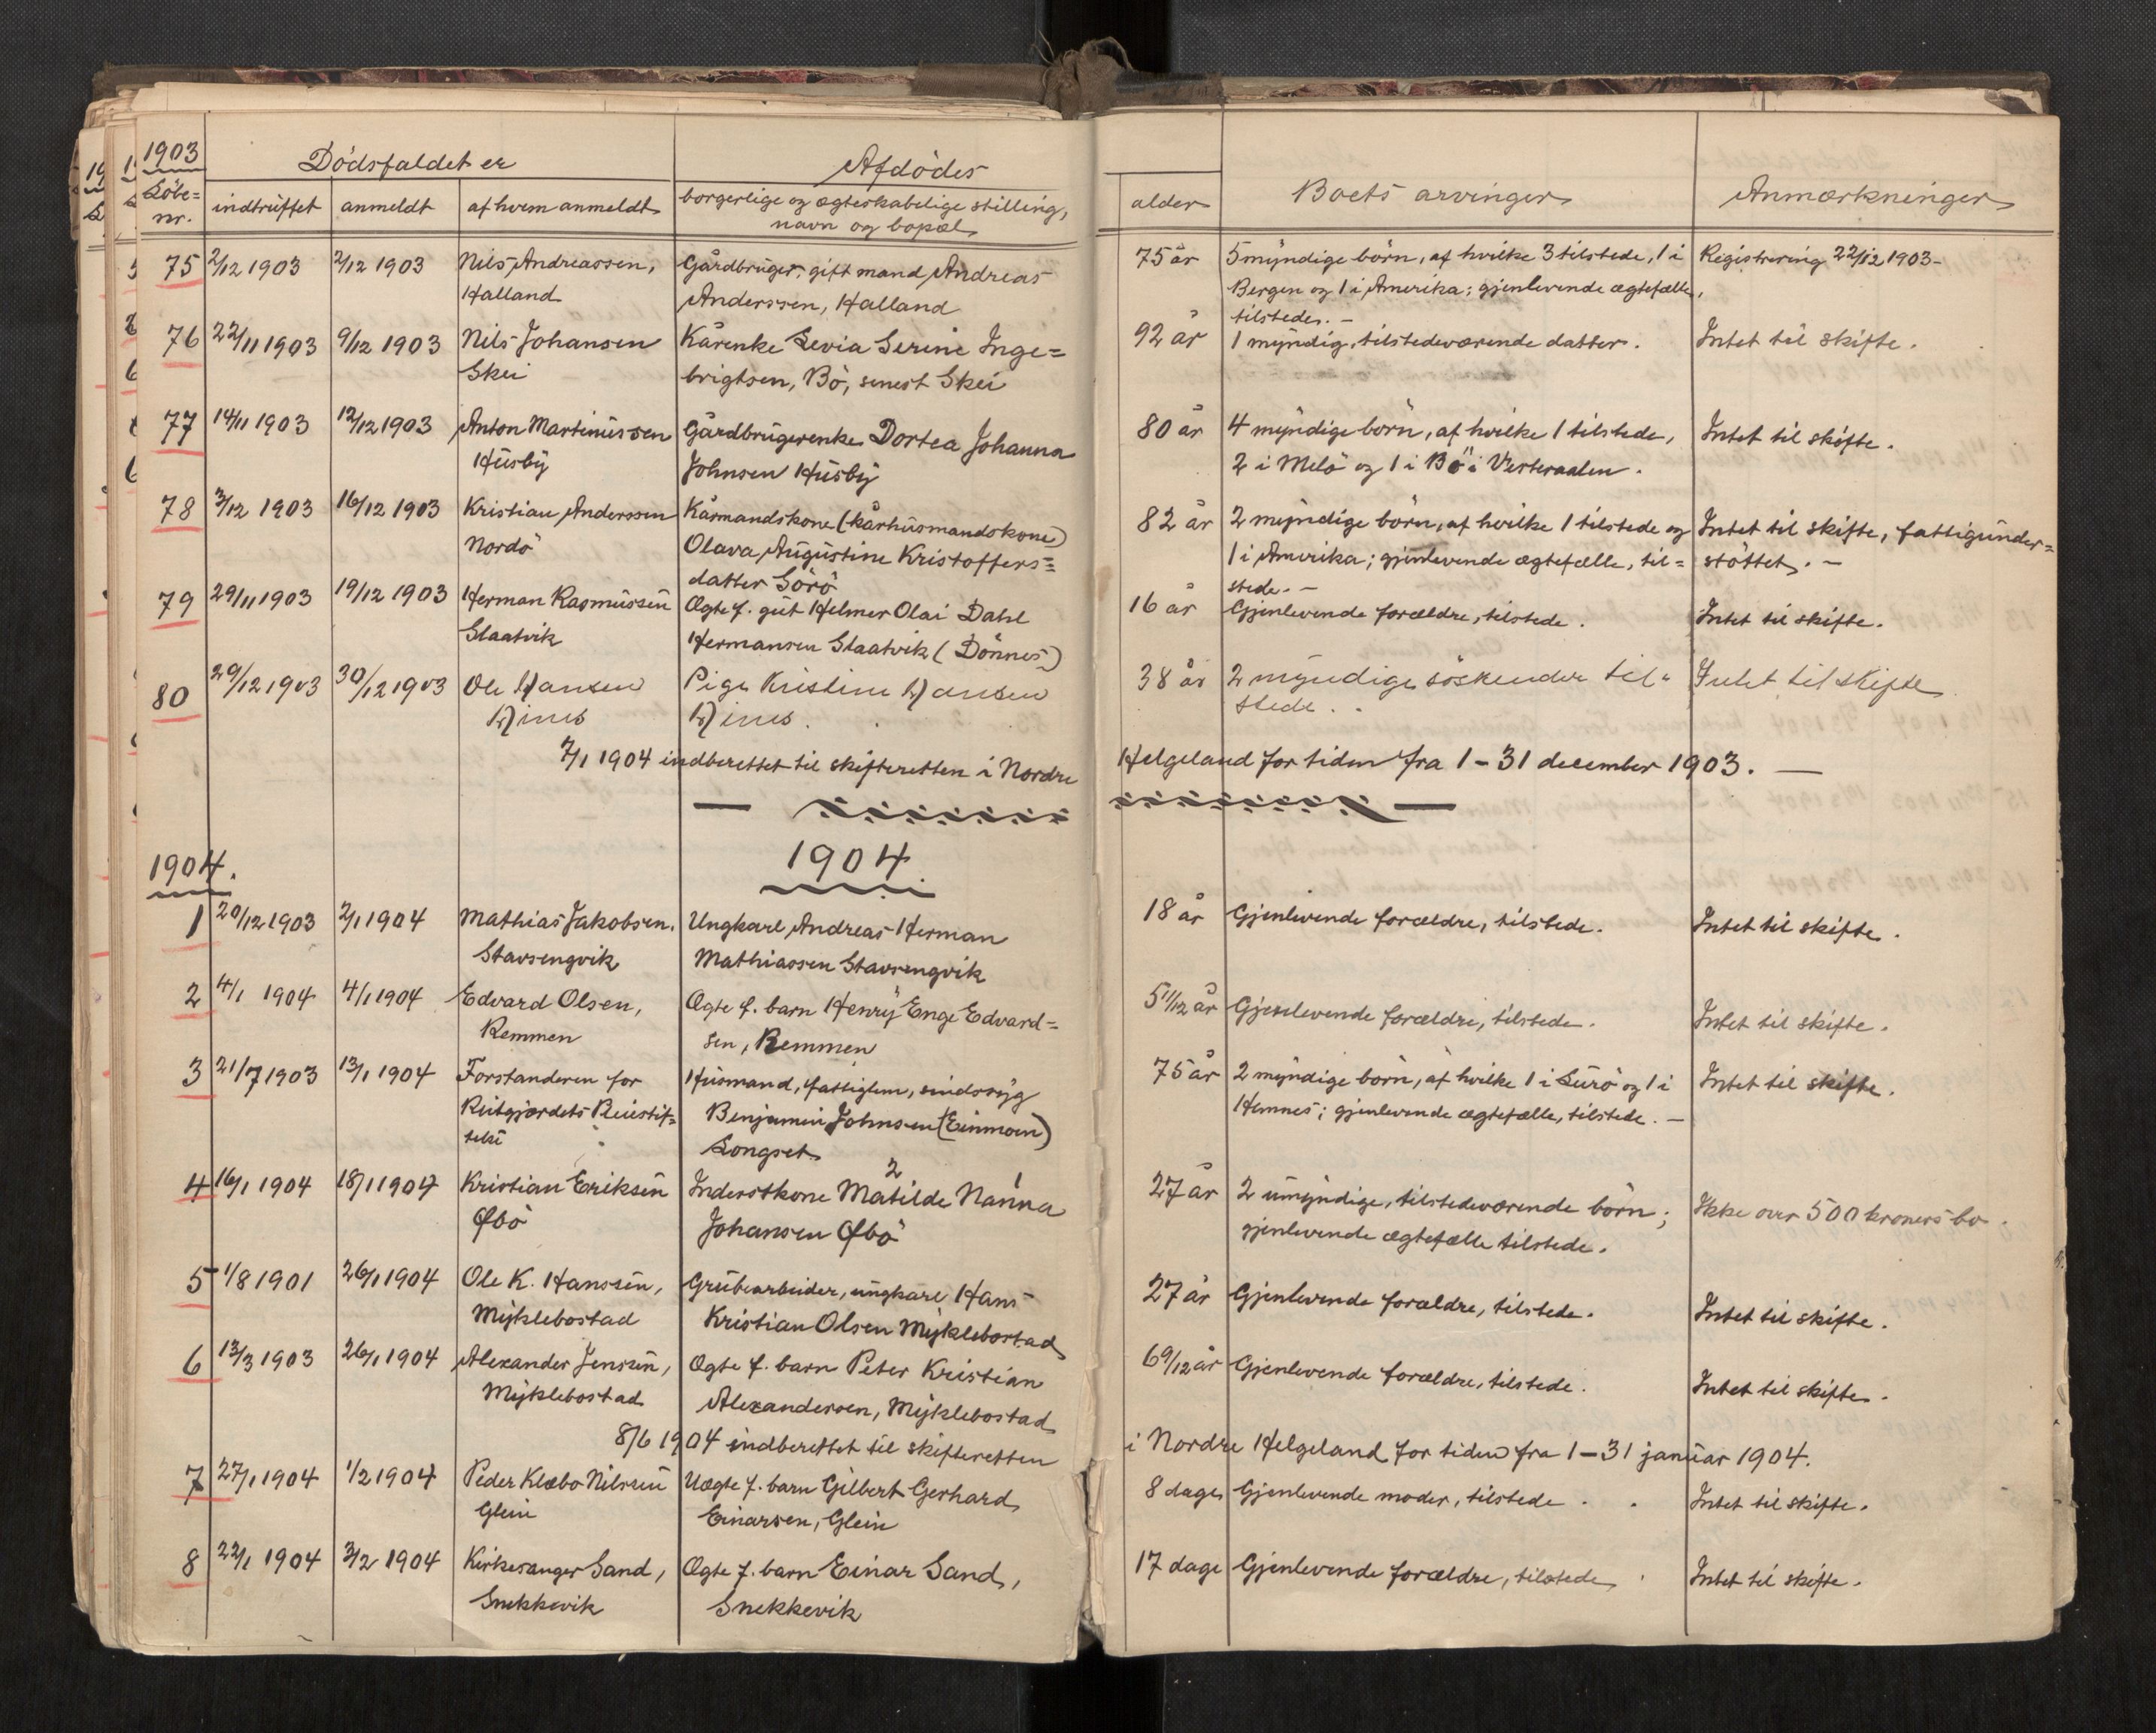 1903
Dödsfaldet er
Afdödes
Löbe=
nr.
indtruffet
anmeldt
af hvem anmeldt
borgerlige og ægteskabelige stilling,
navn og bopæl
alder
Boets arvinger
Anmærkninger
75 2/12 1903 2/12 1903 Nils Andreassen, Gårdbruger, gift mand Andreas 75 år 5 myndige börn, af hvilke 3 tilstede, 1 i Registrering 22/12 1903-
Halland Anderssen, Halland Bergen og 1 i Amerika; gjenlevende ægtefælle,
tilstede. -
76 22/11 1903 9/12 1903 Nils Johansen Kårenke Levia Serine Inge= 92 år 1 myndig, tilstedeværende datter. Intet til skifte.
Skei brigtsen, Bö, senest Skei
77 14/11 1903 12/12 1903 Anton Martinussen Gårdbrugerenke Dortea Johanna 80 år 4 myndige börn, af hvilke 1 tilstede, Intet til skifte.
Husby Johnsen Husby 2 i Melö og 1 i Bö i Vesteraalen.
78 3/12 1903 16/12 1903 Kristian Anderssen Kårmandskone (kårhusmandskone) 82 år 2 myndige börn, af hvilke 1 tilstede og Intet til skifte, fattigunder=
Nordö Olava Augustine Kristoffers= 1 i Amerika; gjenlevende ægtefælle, til= stöttet. -
datter Sörö stede. -
79 29/11 1903 19/12 1903 Herman Rasmussen Ægte f. gut Helmer Olai Dahl 16 år Gjenlevende forældre, tilstede. Intet til skifte.
Slaatvik Hermansen Slaatvik (Dönnes)
80 29/12 1903 30/12 1903 Ole Hansen Pige Kristine Hansen 38 år 2 myndige söskender til= Intet til skifte
Hins Hins. stede.
7/1 1904 indberettet til skifteretten i Nordre Helgeland for tiden fra 1-31 december 1903. -
1904.
1904
1 20/12 1903 2/1 1904 Mathias Jakobsen. Ungkarl Andreas Herman 18 år Gjenlevende forældre, tilstede. Intet til skifte.
Stavsengvik Mathiassen Stavsengvik
2 4/1 1904 4/1 1904 Edvard Olsen, Ægte f. barn Henry Enge Edvard= 5 11/12 år Gjenlevende forældre, tilstede. Intet til skifte.
Remmen sen, Remmen
3 21/7 1903 13/1 1904 Forstanderen for Husmand, fattiglem, sindssyg 75 år 2 myndige börn, af hvilke 1 i Lurö og 1 i Intet til skifte.
Reitgjærdets Benjamin Johnsen (Einmoen) Hemnes; gjenlevende ægtefælle, tilstede. -
telse Longset
4 16/1 1904 18/1 1904 Kristian Eriksen Inderstkone Matilde 2 Nanna 1 27 år 2 umyndige, tilstedeværende börn; Ikke over 500 kroners bo.
Øbö Johansen Øbö gjenlevende ægtefælle tilstede.
5 1/8 1901 26/1 1904 Ole K. Hanssen, Grubearbeider, ungkarl Hans 27 år Gjenlevende forældre, tilstede. Intet til skifte.
Myklebostad Kristian Olsen Myklebostad
6 13/3 1903 26/1 1904 Alexander Jenssen, Ægte f. barn Peter Kristian 6 9/12 år Gjenlevende forældre, tilstede. Intet til skifte.
Myklebostad Alexandersen, Myklebostad
8/6 1904 indberettet til skifteretten i Nordre Helgeland for tiden fra 1-31 januar 1904.
7 27/1 1904 1/2 1904 Peder Klæbo Nilssen Uægte f. barn Gilbert Gerhard 8 dage Gjenlevende moder, tilstede. Intet til skifte.
Glein Einarsen, Glein
8 22/1 1904 3/2 1904 Kirkesanger Sand, Ægte f. barn Einar Sand, 17 dage Gjenlevende forældre, tilstede. Intet til skifte.
Snekkevik Snekkevik